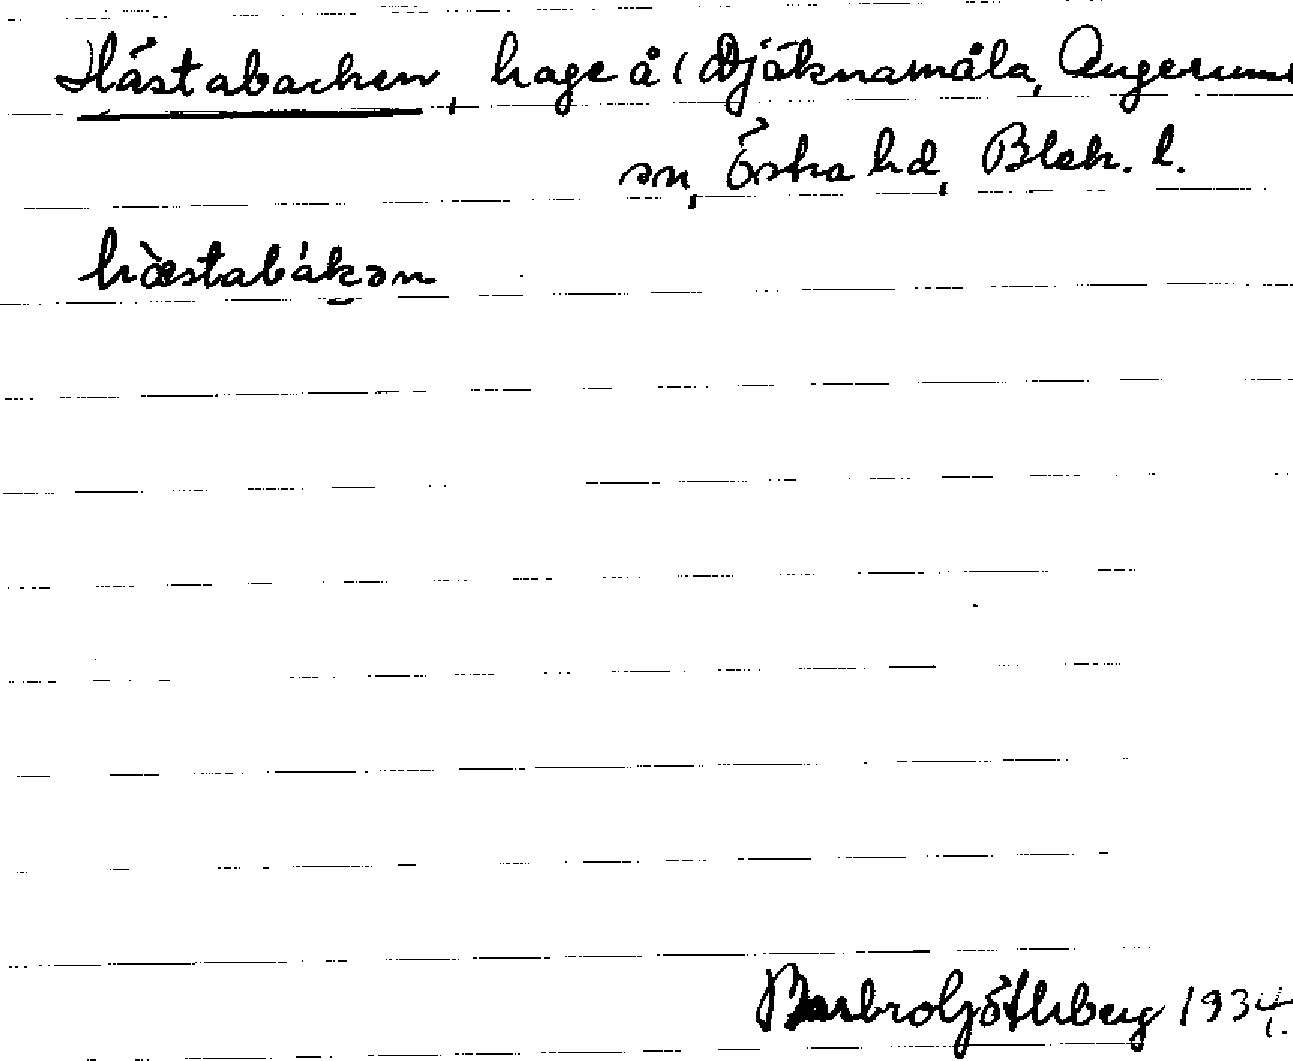 Hästabacken, hage å (Djäknamåla, Augerums
sn, Östra hd, Blek. l.
hæ̀stabákən
Barbro Göthberg 1934.